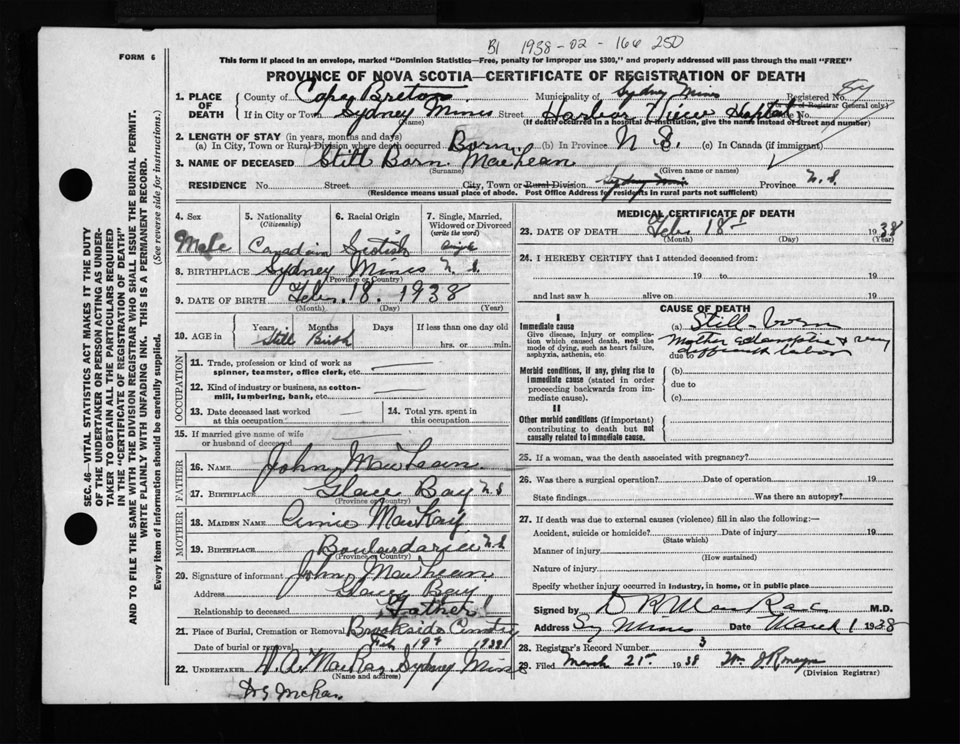 B1 1938 - 02 - 166 250
FORM 6
This form if placed in an envelope, marked "Dominion Statistics—Free, penalty for improper use $300," and properly addressed will pass through the mail "FREE"
PROVINCE OF NOVA SCOTIA—CERTIFICATE OF REGISTRATION OF DEATH
1. PLACE OF DEATH County of Cape Breton Municipality of Sydney Mines Registered No. 84
(For use of Registrar General only)
If in City or Town Sydney Mines Street Harbor View Hospital House No.
(Name) (If death occurred in a hospital or institution, give the name instead of street and number)
2. LENGTH OF STAY (in years, months and days)
(a) In City, Town or Rural Division where death occurred Born (b) In Province N.S. (c) In Canada (if immigrant)
3. NAME OF DECEASED Still Born MacLean
(Surname) (Given name or names)
RESIDENCE No. Street City, Town or Rural Division Sydney Mines Province N.S.
(Residence means usual place of abode. Post Office Address for residents in rural parts not sufficient)
4. Sex Male
5. Nationality (Citizenship) Canadian
6. Racial Origin Scotish
7. Single, Married, Widowed or Divorced (write the word) Single
8. BIRTHPLACE Sydney Mines N.S.
(Province or Country)
9. DATE OF BIRTH Feb. 18. 1938
(Month) (Day) (Year)
10. AGE in Years Months Days If less than one day old
Still Birth hrs. or min.
OCCUPATION
11. Trade, profession or kind of work as spinner, teamster, office clerk, etc.
12. Kind of industry or business, as cotton-mill, lumbering, bank, etc.
13. Date deceased last worked at this occupation
14. Total yrs. spent in this occupation
15. If married give name of wife or husband of deceased
FATHER
16. NAME John MacLean
17. BIRTHPLACE Glace Bay N.S
(Province or Country)
MOTHER
18. MAIDEN NAME Annie MacKay
19. BIRTHPLACE Boulardarie N.S
(Province or Country)
20. Signature of informant John MacLean
Address Glace Bay
Relationship to deceased Father
21. Place of Burial, Cremation or Removal Brookside Cemetry
Date of burial or removal Feb 19 1938
22. UNDERTAKER Sydney Mines
(Name and address)
MEDICAL CERTIFICATE OF DEATH
23. DATE OF DEATH Feb. 18 1938
(Month) (Day) (Year)
24. I HEREBY CERTIFY that I attended deceased from:
19 to 19
and last saw h alive on 19
CAUSE OF DEATH
I
Immediate cause
Give disease, injury or complication which caused death, not the mode of dying, such as heart failure, asphyxia, asthenia, etc.
(a) Still-born
Mother Eclamptic & very difficult labor
due to
Morbid conditions, if any, giving rise to immediate cause (stated in order proceeding backwards from immediate cause).
(b)
due to
(c)
II
Other morbid conditions (if important) contributing to death but not causally related to immediate cause.
25. If a woman, was the death associated with pregnancy?
26. Was there a surgical operation? Date of operation 19
State findings Was there an autopsy?
27. If death was due to external causes (violence) fill in also the following:—
Accident, suicide or homicide? Date of injury 19
(State which)
Manner of injury
(How sustained)
Nature of injury
Specify whether injury occurred in industry, in home, or in public place
Signed by M.D.
Address Sy Mines Date March 1 1938
28. Registrar's Record Number 3
29. Filed March 21st 1938
(Division Registrar)
SEC. 46—VITAL STATISTICS ACT MAKES IT THE DUTY
OF THE UNDERTAKER OR PERSON ACTING AS UNDER-
TAKER TO OBTAIN ALL THE PARTICULARS REQUIRED
IN THE "CERTIFICATE OF REGISTRATION OF DEATH"
AND TO FILE THE SAME WITH THE DIVISION REGISTRAR WHO SHALL ISSUE THE BURIAL PERMIT.
WRITE PLAINLY WITH UNFADING INK. THIS IS A PERMANENT RECORD.
Every item of information should be carefully supplied. (See reverse side for instructions.)